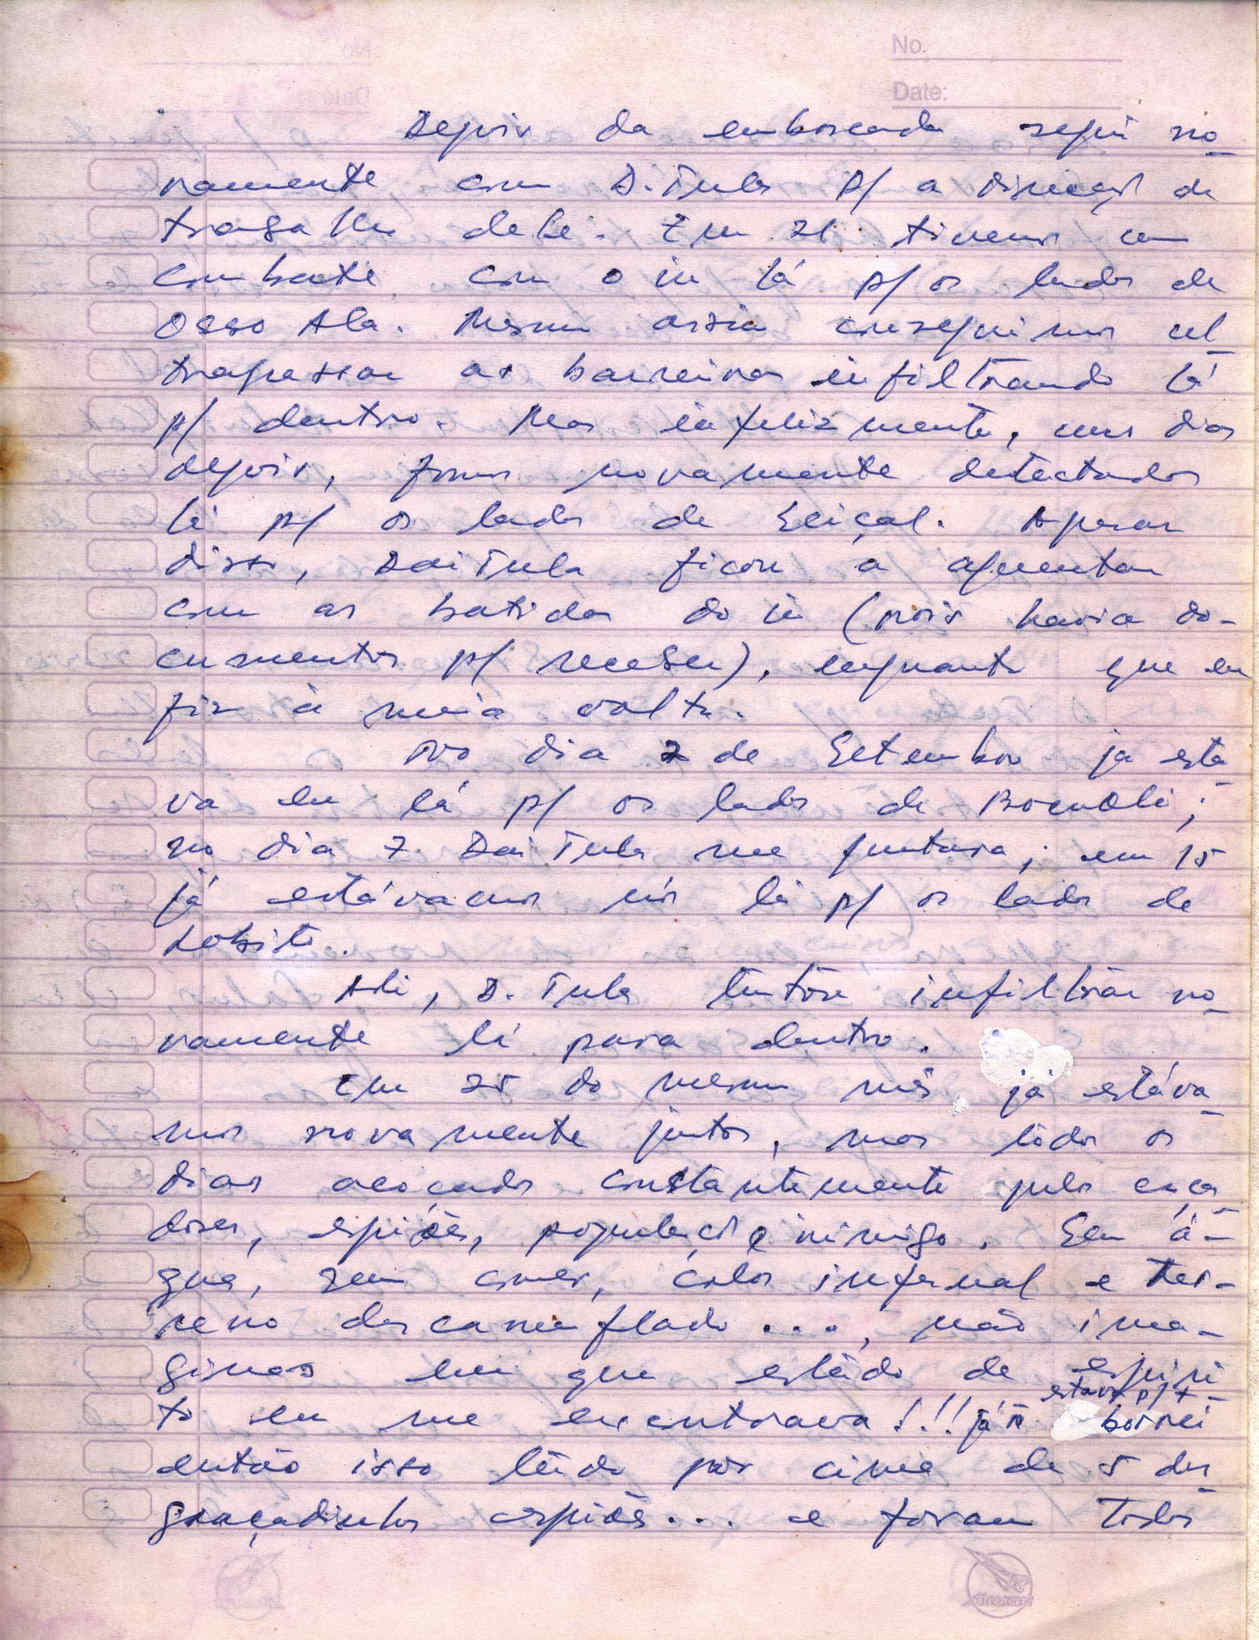 No.
Date:
Depois da emboscada segui no-
vamente com D.Tula p/ a direcção de
trabalho dele. Em 21 tivemos um
combate com o in lá p/ os lados de
Osso Ala. Mesmo assim conseguimos ul-
trapassar as barreiras infiltrando lá
p/ dentro. Mas infelizmente, uns dias
depois, fomos novamente detectados
lá p/ os lados de Seiçal. Apesar
disso, DaiTula ficou a aguentar
com as batidas do in (pois havia do-
cumentos p/ receber), enquanto que eu
fiz a meia volta.
No dia 2 de Setembro ja esta-
va eu lá p/ os lados de Bocudli;
no dia 7 DaiTula me juntara; em 15
já estávamos nós lá p/ os lados de
Lobito.
Ali, D. Tula tentou infiltrar no-
vamente lá para dentro.
Em 25 do mesmo mês já estáva-
mos novamente juntos, mas todos os
dias acoçados constantemente pelos caça-
dores, espiões, população e inimigo. Sem á-
gua, sem comer, calor infernal e ter-
reno descamuflado..., não ima-
ginas em que estádo de espiri-
to eu me encontrava!!! já ñ estava p/ +
borrei
então isso tudo por cima de 5 des-
graçadinhos espiões... e foram todos